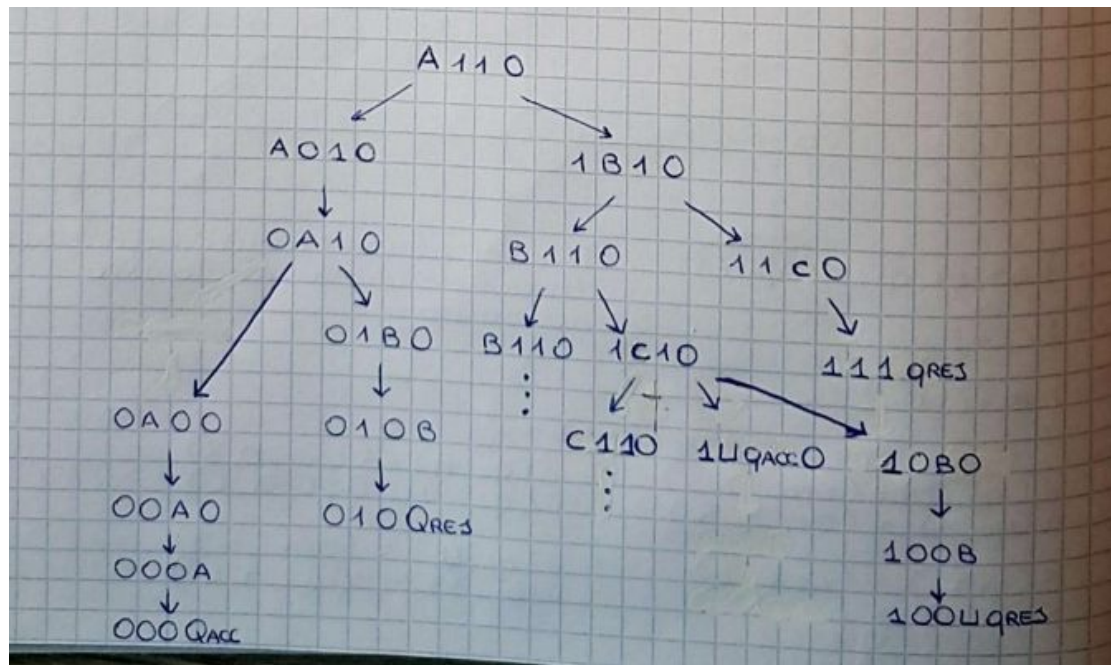 A 1 1 0
A 0 1 0
1 B 1 0
0 A 1 0
B 1 1 0
1 1 C 0
0 1 B 0
B 1 1 0
1 C 1 0
1 1 1 qREJ
0 A 0 0
0 1 0 B
C 1 1 0
1 ⊔ qACC 0
1 0 B 0
0 0 A 0
0 1 0 QREJ
1 0 0 B
0 0 0 A
1 0 0 ⊔ qREJ
0 0 0 QACC